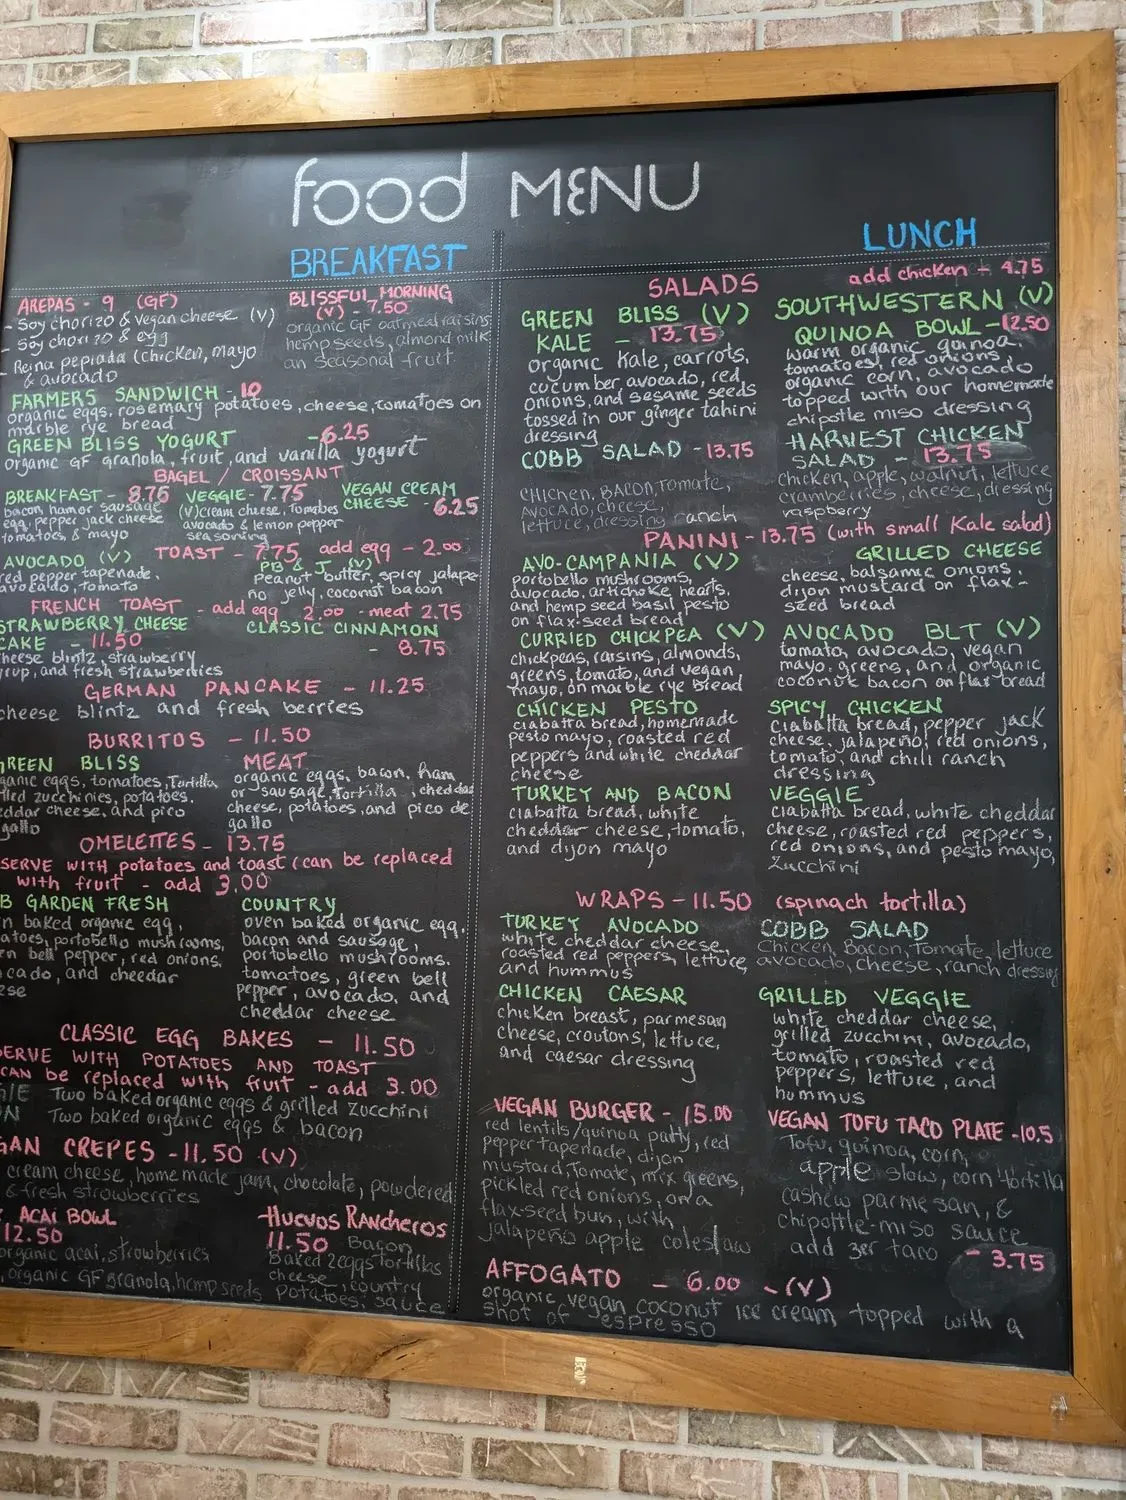 food MENU
BREAKFAST
AREPAS - 9 (GF)
- Soy chorizo & vegan cheese (V)
- Soy chorizo & egg
- Reina pepiada (chicken, mayo
& avocado
BLISSFUL MORNING
(V) - 7.50
organic GF oatmeal raisins
hemp seeds, almond milk
an seasonal fruit
FARMERS SANDWICH - 10
organic eggs, rosemary potatoes, cheese, tomatoes on
marble rye bread
GREEN BLISS YOGURT - 6.25
organic GF granola, fruit, and vanilla yogurt
BAGEL / CROISSANT
BREAKFAST - 8.75
bacon ham or sausage
egg, pepper jack cheese
tomatoes, & mayo
VEGGIE - 7.75
(V) cream cheese, Tomatoes
avocado & lemon pepper
seasoning
VEGAN CREAM
CHEESE - 6.25
TOAST - 7.75 add egg - 2.00
AVOCADO (V)
red pepper tapenade,
avocado, tomato
PB & J (V)
Peanut butter, spicy jalape
no jelly, coconut bacon
FRENCH TOAST - add egg 2.00 - meat 2.75
STRAWBERRY CHEESE
CAKE - 11.50
cheese blintz, strawberry
yrup, and fresh strawberries
CLASSIC CINNAMON
- 8.75
GERMAN PANCAKE - 11.25
cheese blintz and fresh berries
BURRITOS - 11.50
REEN BLISS
ganic eggs, tomatoes, Tortilla
lled zucchinies, potatoes,
eddar cheese, and pico
gallo
MEAT
organic eggs, bacon, ham
or sausage, Tortilla, cheddar
cheese, potatoes, and pico de
gallo
OMELETTES - 13.75
SERVE WITH potatoes and toast (can be replaced
with fruit - add 3.00
B GARDEN FRESH
n baked organic egg,
atoes, portobello mushrooms,
en bell pepper, red onions,
cado, and cheedar
ese
COUNTRY
oven baked organic egg,
bacon and sausage,
portobello mushrooms.
tomatoes, green bell
pepper, avocado, and
cheddar cheese
CLASSIC EGG BAKES - 11.50
SERVE WITH POTATOES AND TOAST
CAN be replaced with fruit - add 3.00
GIE Two baked organic eggs & grilled zucchini
N Two baked organic eggs & bacon
GAN CREPES - 11.50 (V)
cream cheese, homemade jam, chocolate, powdered
& fresh strawberries
ACAI BOWL
12.50
organic acai, strawberries
, organic GF granola, hemp seeds
Huevos Rancheros
11.50 Bacon
Baked 2 eggs tortillas
cheese, country
potatoes, sauce
LUNCH
SALADS
add chicken + 4.75
GREEN BLISS (V)
KALE - 13.75
organic Kale, carrots,
cucumber avocado, red
onions, and sesame seeds
tossed in our ginger tahini
dressing
SOUTHWESTERN (V)
QUINOA BOWL - 12.50
warm organic quinoa,
tomatoes, red onions,
organic corn, avocado
topped with our homemade
chipotle miso dressing
COBB SALAD - 13.75
CHICKEN, BACON, Tomate,
Avocado, cheese,
lettuce, dressing ranch
HARVEST CHICKEN
SALAD - 13.75
chicken, apple, walnut, lettuce
cramberries, cheese, dressing
raspberry
PANINI - 13.75 (with small Kale salad)
AVO-CAMPANIA (V)
portobello mushrooms,
avocado, artichoke hearts,
and hemp seed basil pesto
on flax-seed bread
GRILLED CHEESE
cheese, balsamic onions,
dijon mustard on flax-
seed bread
CURRIED CHICKPEA (V)
chickpeas, raisins, almonds,
greens, tomato, and vegan
mayo, on marble rye bread
AVOCADO BLT (V)
tomato, avocado, vegan
mayo, greens, and organic
coconut bacon on flax bread
CHICKEN PESTO
ciabatta bread, homemade
pesto mayo, roasted red
peppers and white cheddar
cheese
SPICY CHICKEN
ciabatta bread, pepper jack
cheese, jalapeño, red onions,
tomato, and chili ranch
dressing
TURKEY AND BACON
ciabatta bread, white
cheddar cheese, tomato,
and dijon mayo
VEGGIE
ciabatta bread, white cheddar
cheese, roasted red peppers,
red onions, and pesto mayo,
Zucchini
WRAPS - 11.50 (spinach tortilla)
TURKEY AVOCADO
white cheddar cheese,
roasted red peppers, lettuce,
and hummus
COBB SALAD
Chicken, Bacon, Tomate, lettuce
avocado, cheese, ranch dressing
CHICKEN CAESAR
chicken breast, parmesan
cheese, croutons, lettuce,
and caesar dressing
GRILLED VEGGIE
white cheddar cheese,
grilled zucchini, avocado,
tomato, roasted red
peppers, lettuce, and
hummus
VEGAN BURGER - 15.00
red lentils/quinoa patty, red
pepper tapenade, dijon
mustard, Tomate, mix greens,
pickled red onions, on a
flax-seed bun, with
jalapeño apple coleslaw
VEGAN TOFU TACO PLATE - 10.5
Tofu, quinoa, corn,
apple slow, corn tortilla
cashew parmesan, &
chipottle-miso sauce
add 3er taco - 3.75
AFFOGATO - 6.00 - (V)
organic vegan coconut ice cream topped with a
shot of espresso